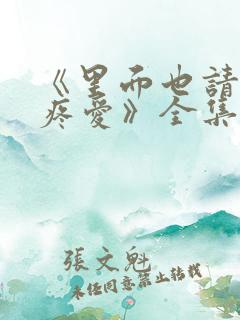 《里而也請
疼愛》全集
張文魁
未任同意禁止转载